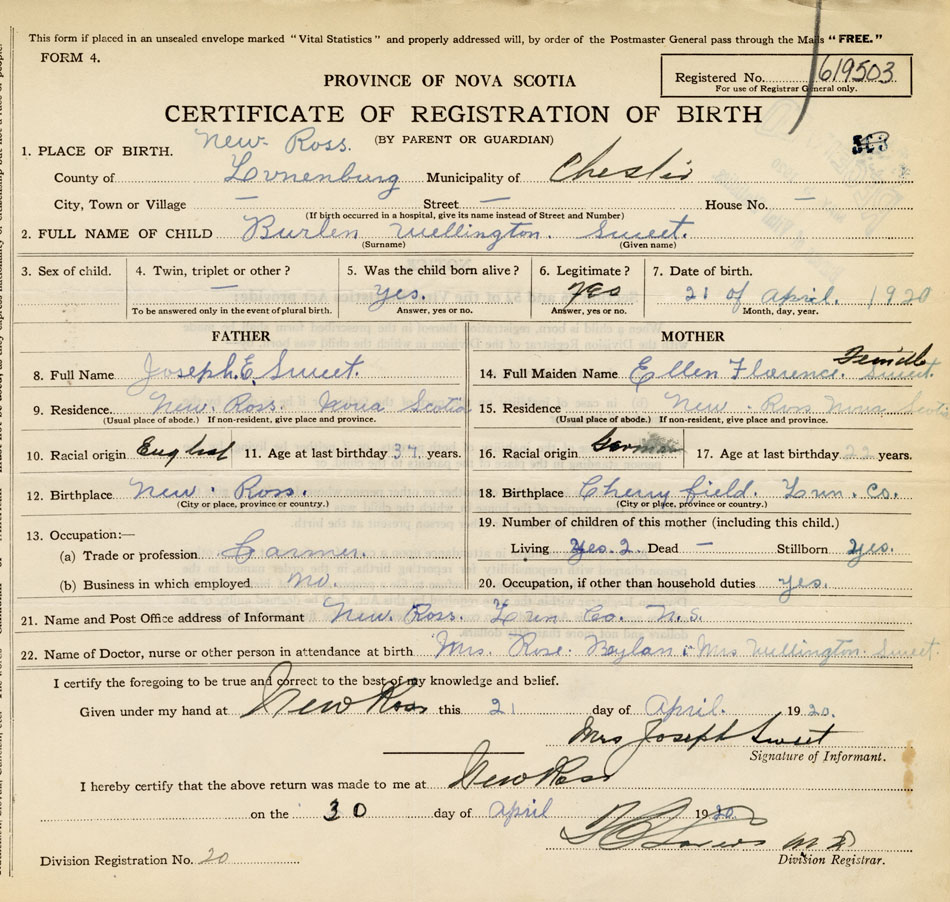 This form if placed in an unsealed envelope marked "Vital Statistics" and properly addressed will, by order of the Postmaster General pass through the Mails "FREE."
FORM 4.
Registered No. 619503
For use of Registrar General only.
PROVINCE OF NOVA SCOTIA
CERTIFICATE OF REGISTRATION OF BIRTH
(BY PARENT OR GUARDIAN)
New Ross.
1. PLACE OF BIRTH.
County of Lunenburg Municipality of Chester
City, Town or Village — Street — House No. —
(If birth occurred in a hospital, give its name instead of Street and Number)
2. FULL NAME OF CHILD Burlen Wellington. Sweet.
(Surname) (Given name)
3. Sex of child. 4. Twin, triplet or other? — 5. Was the child born alive? yes. 6. Legitimate? yes 7. Date of birth. 21 of April. 1920
To be answered only in the event of plural birth. Answer, yes or no. Answer, yes or no. Month, day, year.
FATHER
8. Full Name Joseph. E. Sweet.
9. Residence. New. Ross. Nova Scotia
(Usual place of abode.) If non-resident, give place and province.
10. Racial origin English 11. Age at last birthday 37. years.
12. Birthplace New. Ross.
(City or place, province or country.)
13. Occupation:—
(a) Trade or profession Farmer.
(b) Business in which employed no.
MOTHER
14. Full Maiden Name Ellen Florence. Sweet.
15. Residence New. Ross Nova Scotia
(Usual place of abode.) If non-resident, give place and province.
16. Racial origin German 17. Age at last birthday 22 years.
18. Birthplace Cherryfield. Lun. Co.
(City or place, province or country.)
19. Number of children of this mother (including this child.)
Living yes. 2. Dead — Stillborn yes.
20. Occupation, if other than household duties yes.
21. Name and Post Office address of Informant New. Ross. Lun Co. N.S.
22. Name of Doctor, nurse or other person in attendance at birth Mrs. Rose. Mrs Wellington. Sweet.
I certify the foregoing to be true and correct to the best of my knowledge and belief.
Given under my hand at New Ross this 21 day of April. 1920.
Mrs Joseph Sweet
Signature of Informant.
I hereby certify that the above return was made to me at New Ross
on the 30 day of April 1920
M D
Division Registrar.
Division Registration No. 20